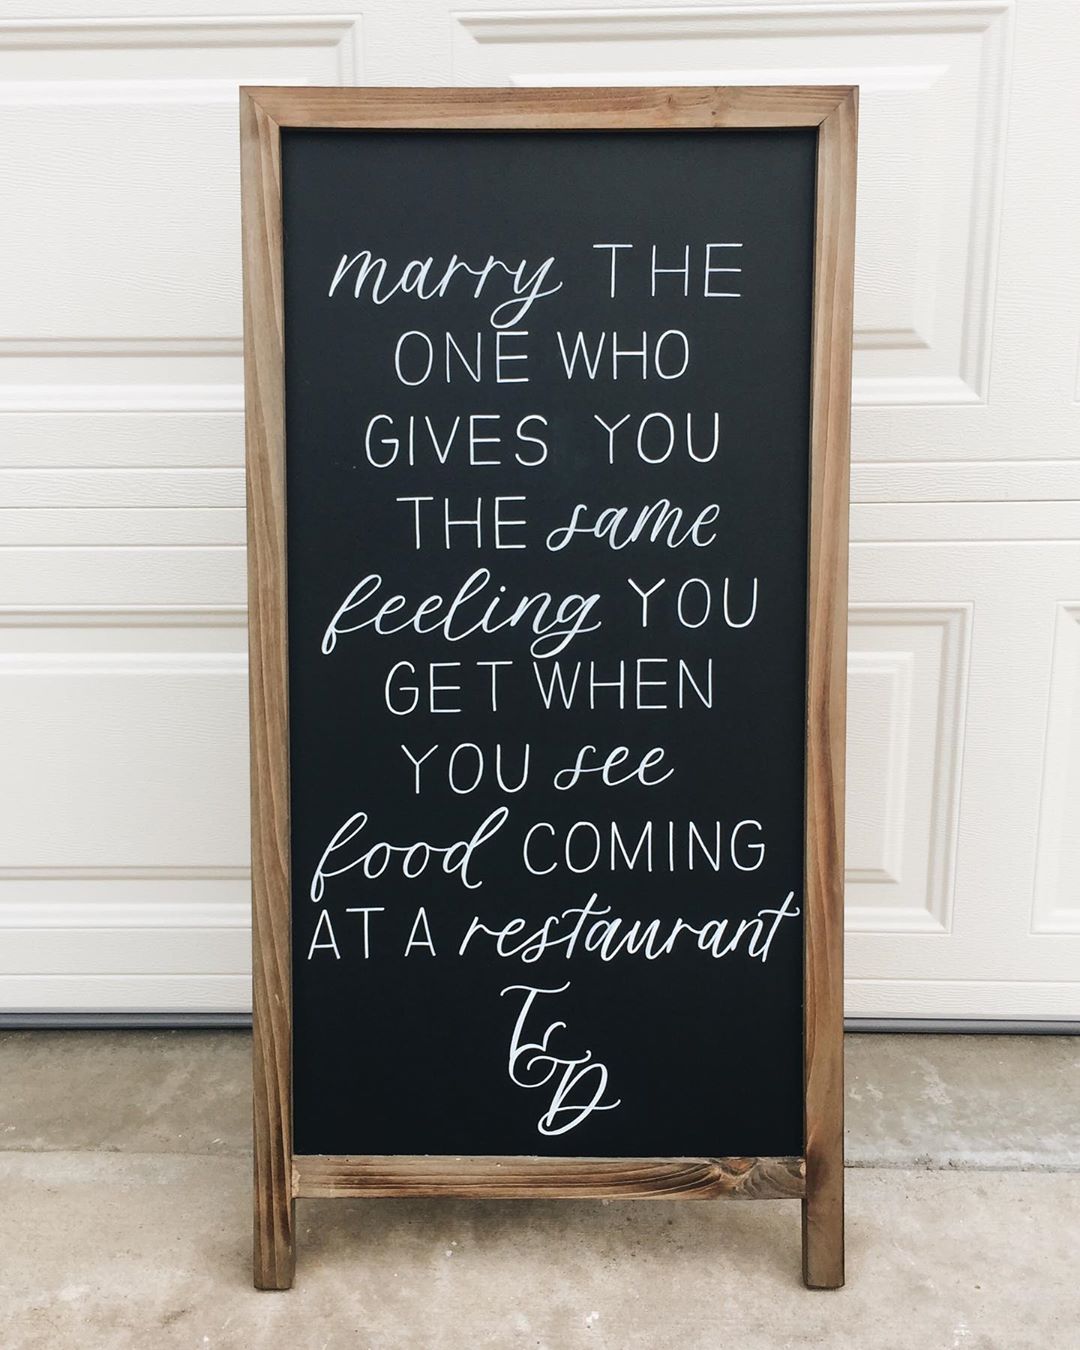 marry THE
ONE WHO
GIVES YOU
THE same
feeling YOU
GET WHEN
YOU see
food COMING
AT A restaurant
T&D